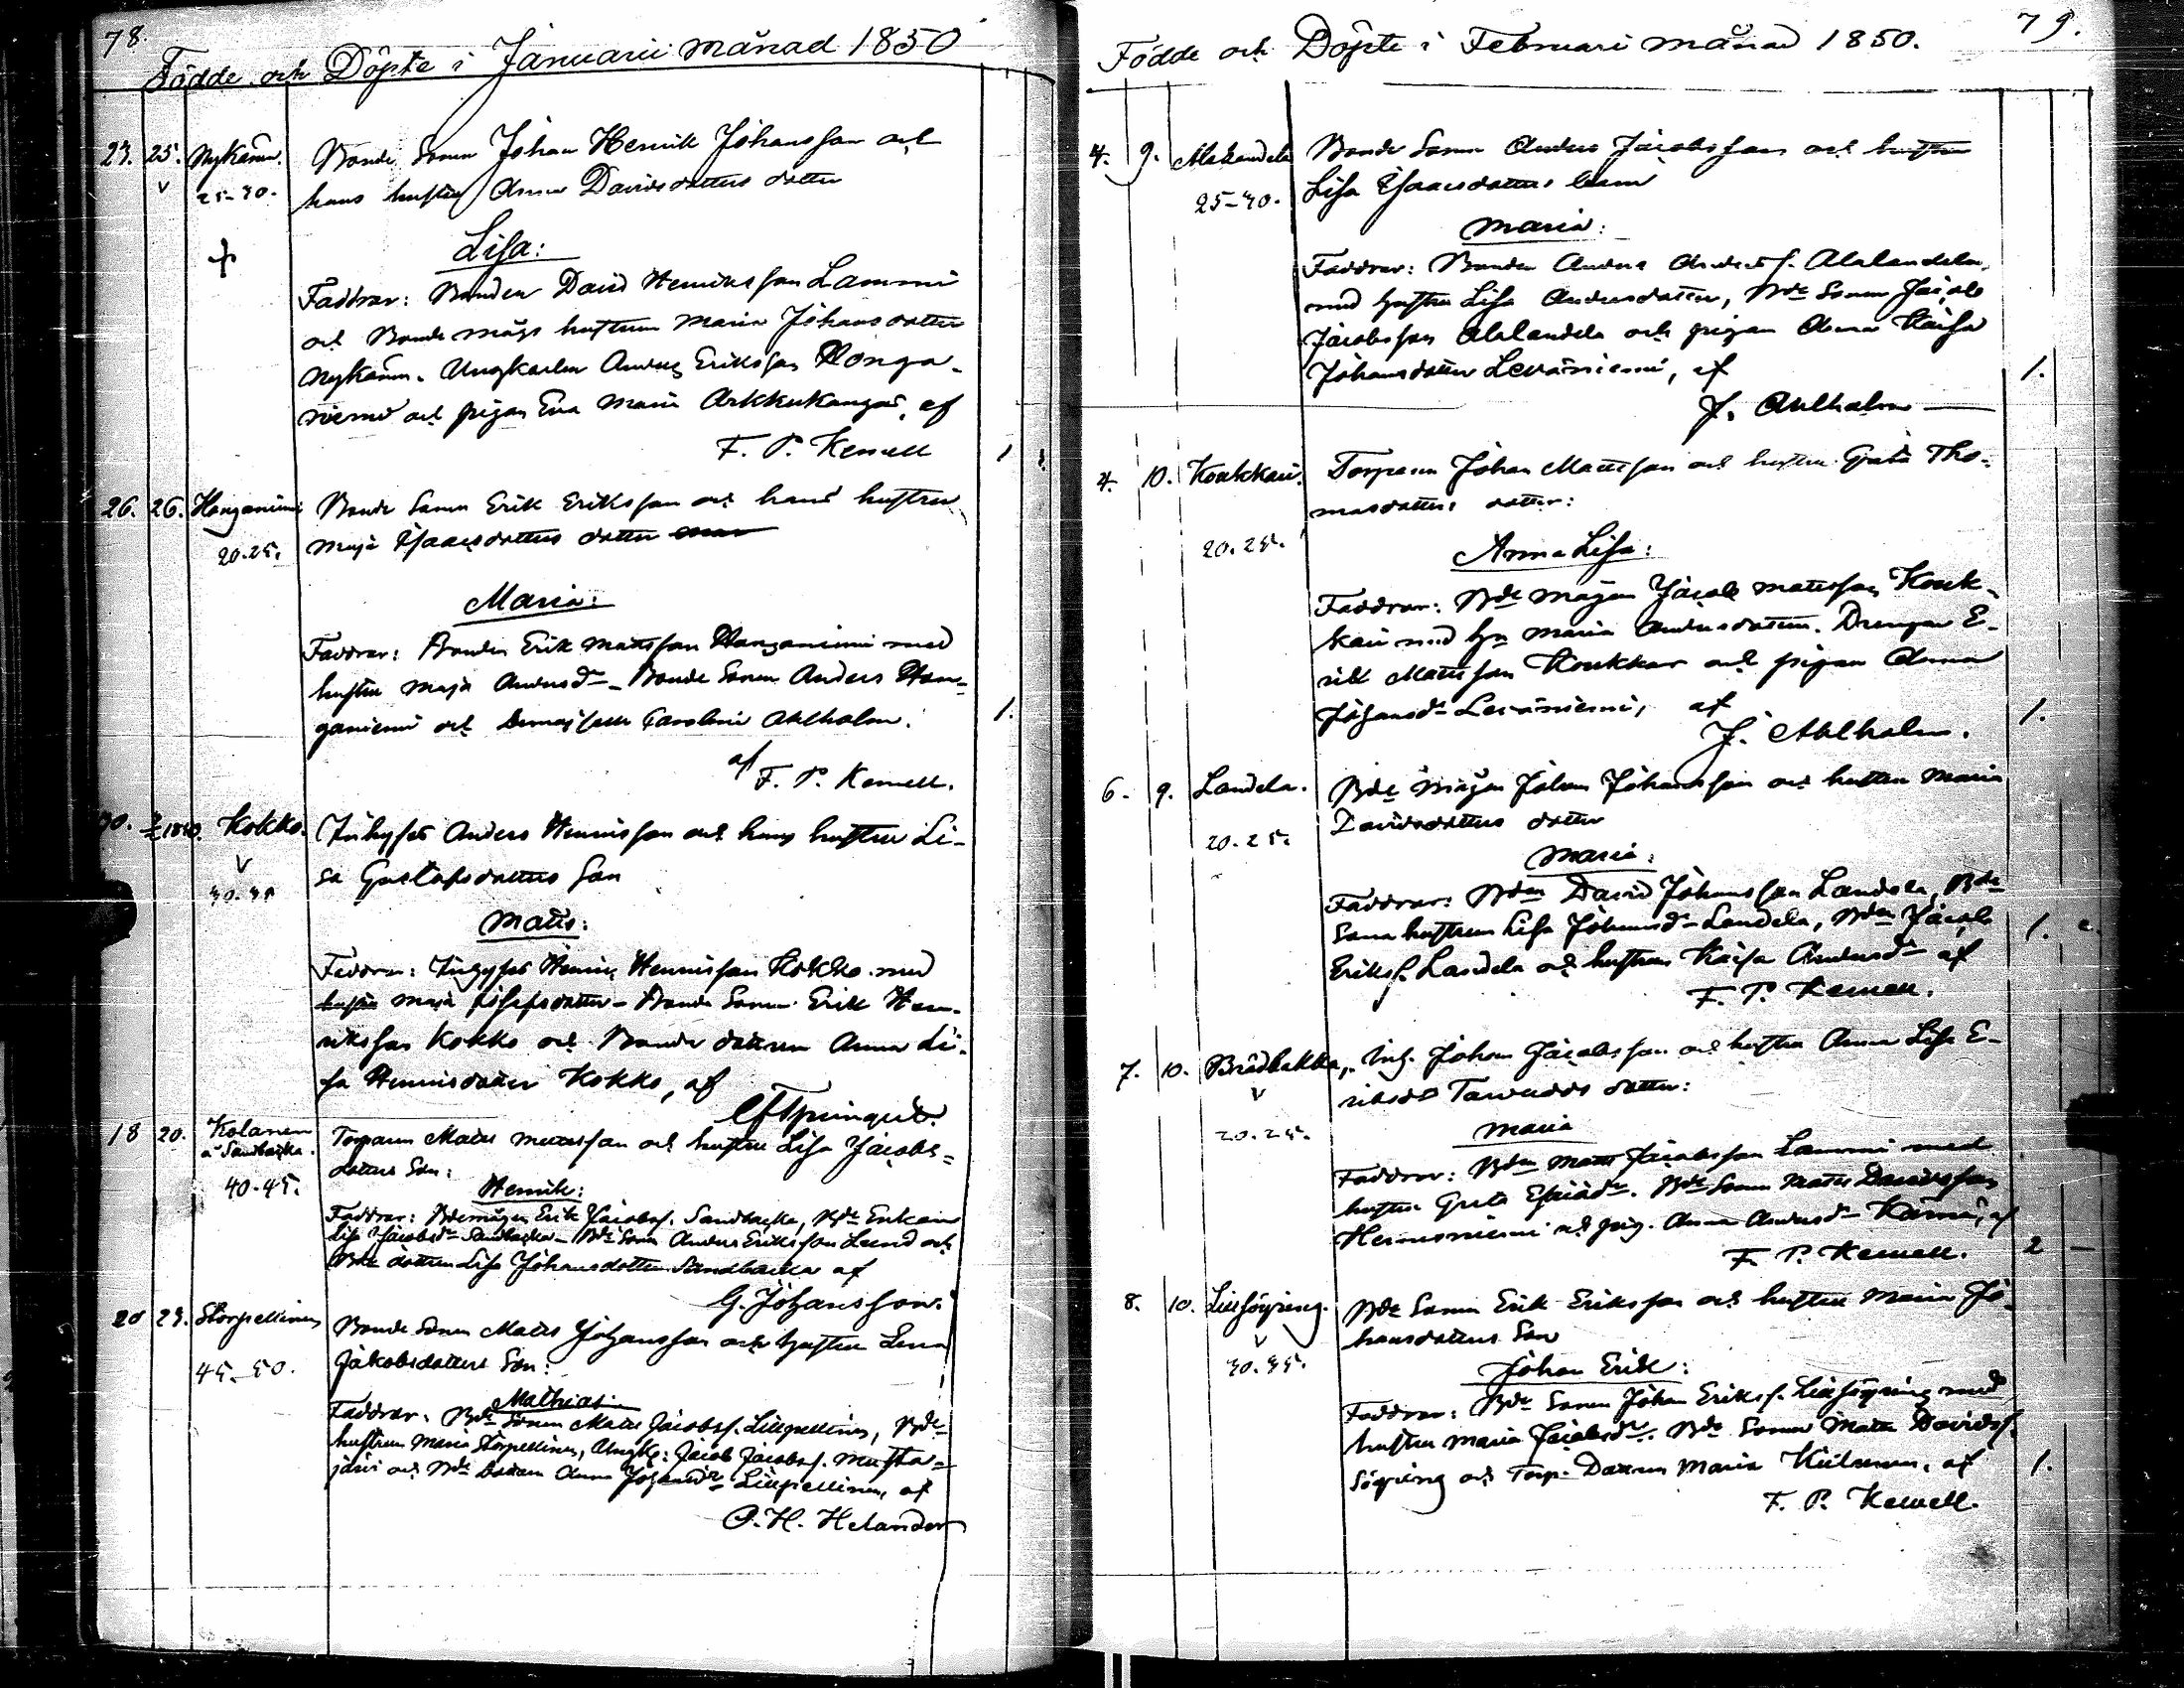 78.
Födde och Döpte i Januarii månad 1850
23. 25. Nykänn. Bonde Sonen Johan Henrik Johansson och
25-30. hans hustru Anna Davidsdotters dotter
Lisa:
Faddrar: Bonden David Henriksson Lammi
och Bonde mågs hustrun Maria Johansdotter
Nykänn. Ungkarlen Anders Eriksson Honga-
niemi och pigan Eva Maria Arkkukangas, af
F. P. Kemell 1
26. 26. Honganiemi Bonde Sonen Erik Eriksson och hans hustru
20.25. Maja Isaacsdotters dotter
Maria:
Faddrar: Bonden Erik Mattsson Honganiemi med
hustru Maja Andersdr - Bonde Sonen Anders Hon-
ganiemi och Carolina Ahlholm. 1.
af F. P. Kemell.
30. Kokko. Inhyses Anders Henriksson och hans hustru Li-
sa Gustafsdotters Son
30.35
Matts:
Faddrar: Inhyses Henrik Henriksson Kokko med
hustru Maja - Bonde Sonen Erik Hen-
riksson Kokko och Bonde dottren Anna Li-
sa Henriksdotter Kokko, af
18 20. Kolanen Torparen Matts Mattsson och hustru Lisa Jacobs-
a Sandbacka. dotters Son:
40-45. Henrik:
Faddrar: Bdemågen Erik Jacobss. Sandbacka, Bde Enkan
Lisa Jacobsdr Sandbacka - Bde Sonen Anders Eriksson Lund och
Bde dottren Lisa Johansdotter Sandbacka af
G. Johansson.
20 23. Storpellinen Bonde Sonen Matts Johansson och hustru Lena
45-50. Jakobsdotters Son:
Mathias
Faddrar: Bde Sonen Matts Jacobss. Lillpellinen, Bde
hustrun Maria Storpellinen, Ungk: Jacob Jacobss. Musta-
järvi och Bde Dottren Anna Johansdr Lillpellinen, af
P. H. Helander
79.
Födde och Döpte i Februari månad 1850.
4. 9. Alalandela Bonde Sonen Anders Jacobsson och hustru
25-30. Lisa Isaacsdotters barn
Maria:
Faddrar: Bonden Anders Anderss. Alalandela,
med hustru Lisa Andersdotter, Bde Sonen Jacob
Jacobsson Alalandela och pigan Anna Kaisa
Johansdotter Leväniemi, af 1.
J. Ahlholm
4. 10. Koukkari. Torparen Johan Mattsson och hustru Greta Tho-
masdotters dotter:
20.25. Anna Lisa:
Faddrar: Bde mågen Jacob Mattsson Kouk-
kari med hu Maria Andersdotter. Drengen E-
rik Mattsson Koukkar och pigan Anna
Johansdr Leväniemi, af 1.
J. Ahlholm.
6. 9. Landela. Bde mågen Johan Johansson och hustru Maria
20.25. Davidsdotters dotter
Maria:
Faddrar: Bden David Johansson Landela, Bde
Sona hustrun Lisa Johansdr Landela, Bden Jacob 1.
Erikss. Landela och hustrun Kaisa Andersdr af
F. P. Kemell.
7. 10. Brådbakka, Inh. Johan Jacobsson och hustru Anna Lisa E-
riksdr dotter:
20.25. Maria
Faddrar: Bden Matts Jacobsson Lammi med
hustru Greta Esaiädr. Bde Sonen Matts Davidsson
Hernesniemi och pig. Anna Andersdr Kännä, af
F. P. Kemell. 2 -
8. 10. Lillsöyring. Bde Sonen Erik Eriksson och hustru Maria Jo-
hansdotters Son
30.35. Johan Erik:
Faddrar: Bde Sonen Johan Erikss. Lillsöyring med
hustru Maria Jacobsdr. Bde Sonen Matts Davidss.
Söyring och Torp. Dottren Maria af 1.
F. P. Kemell.